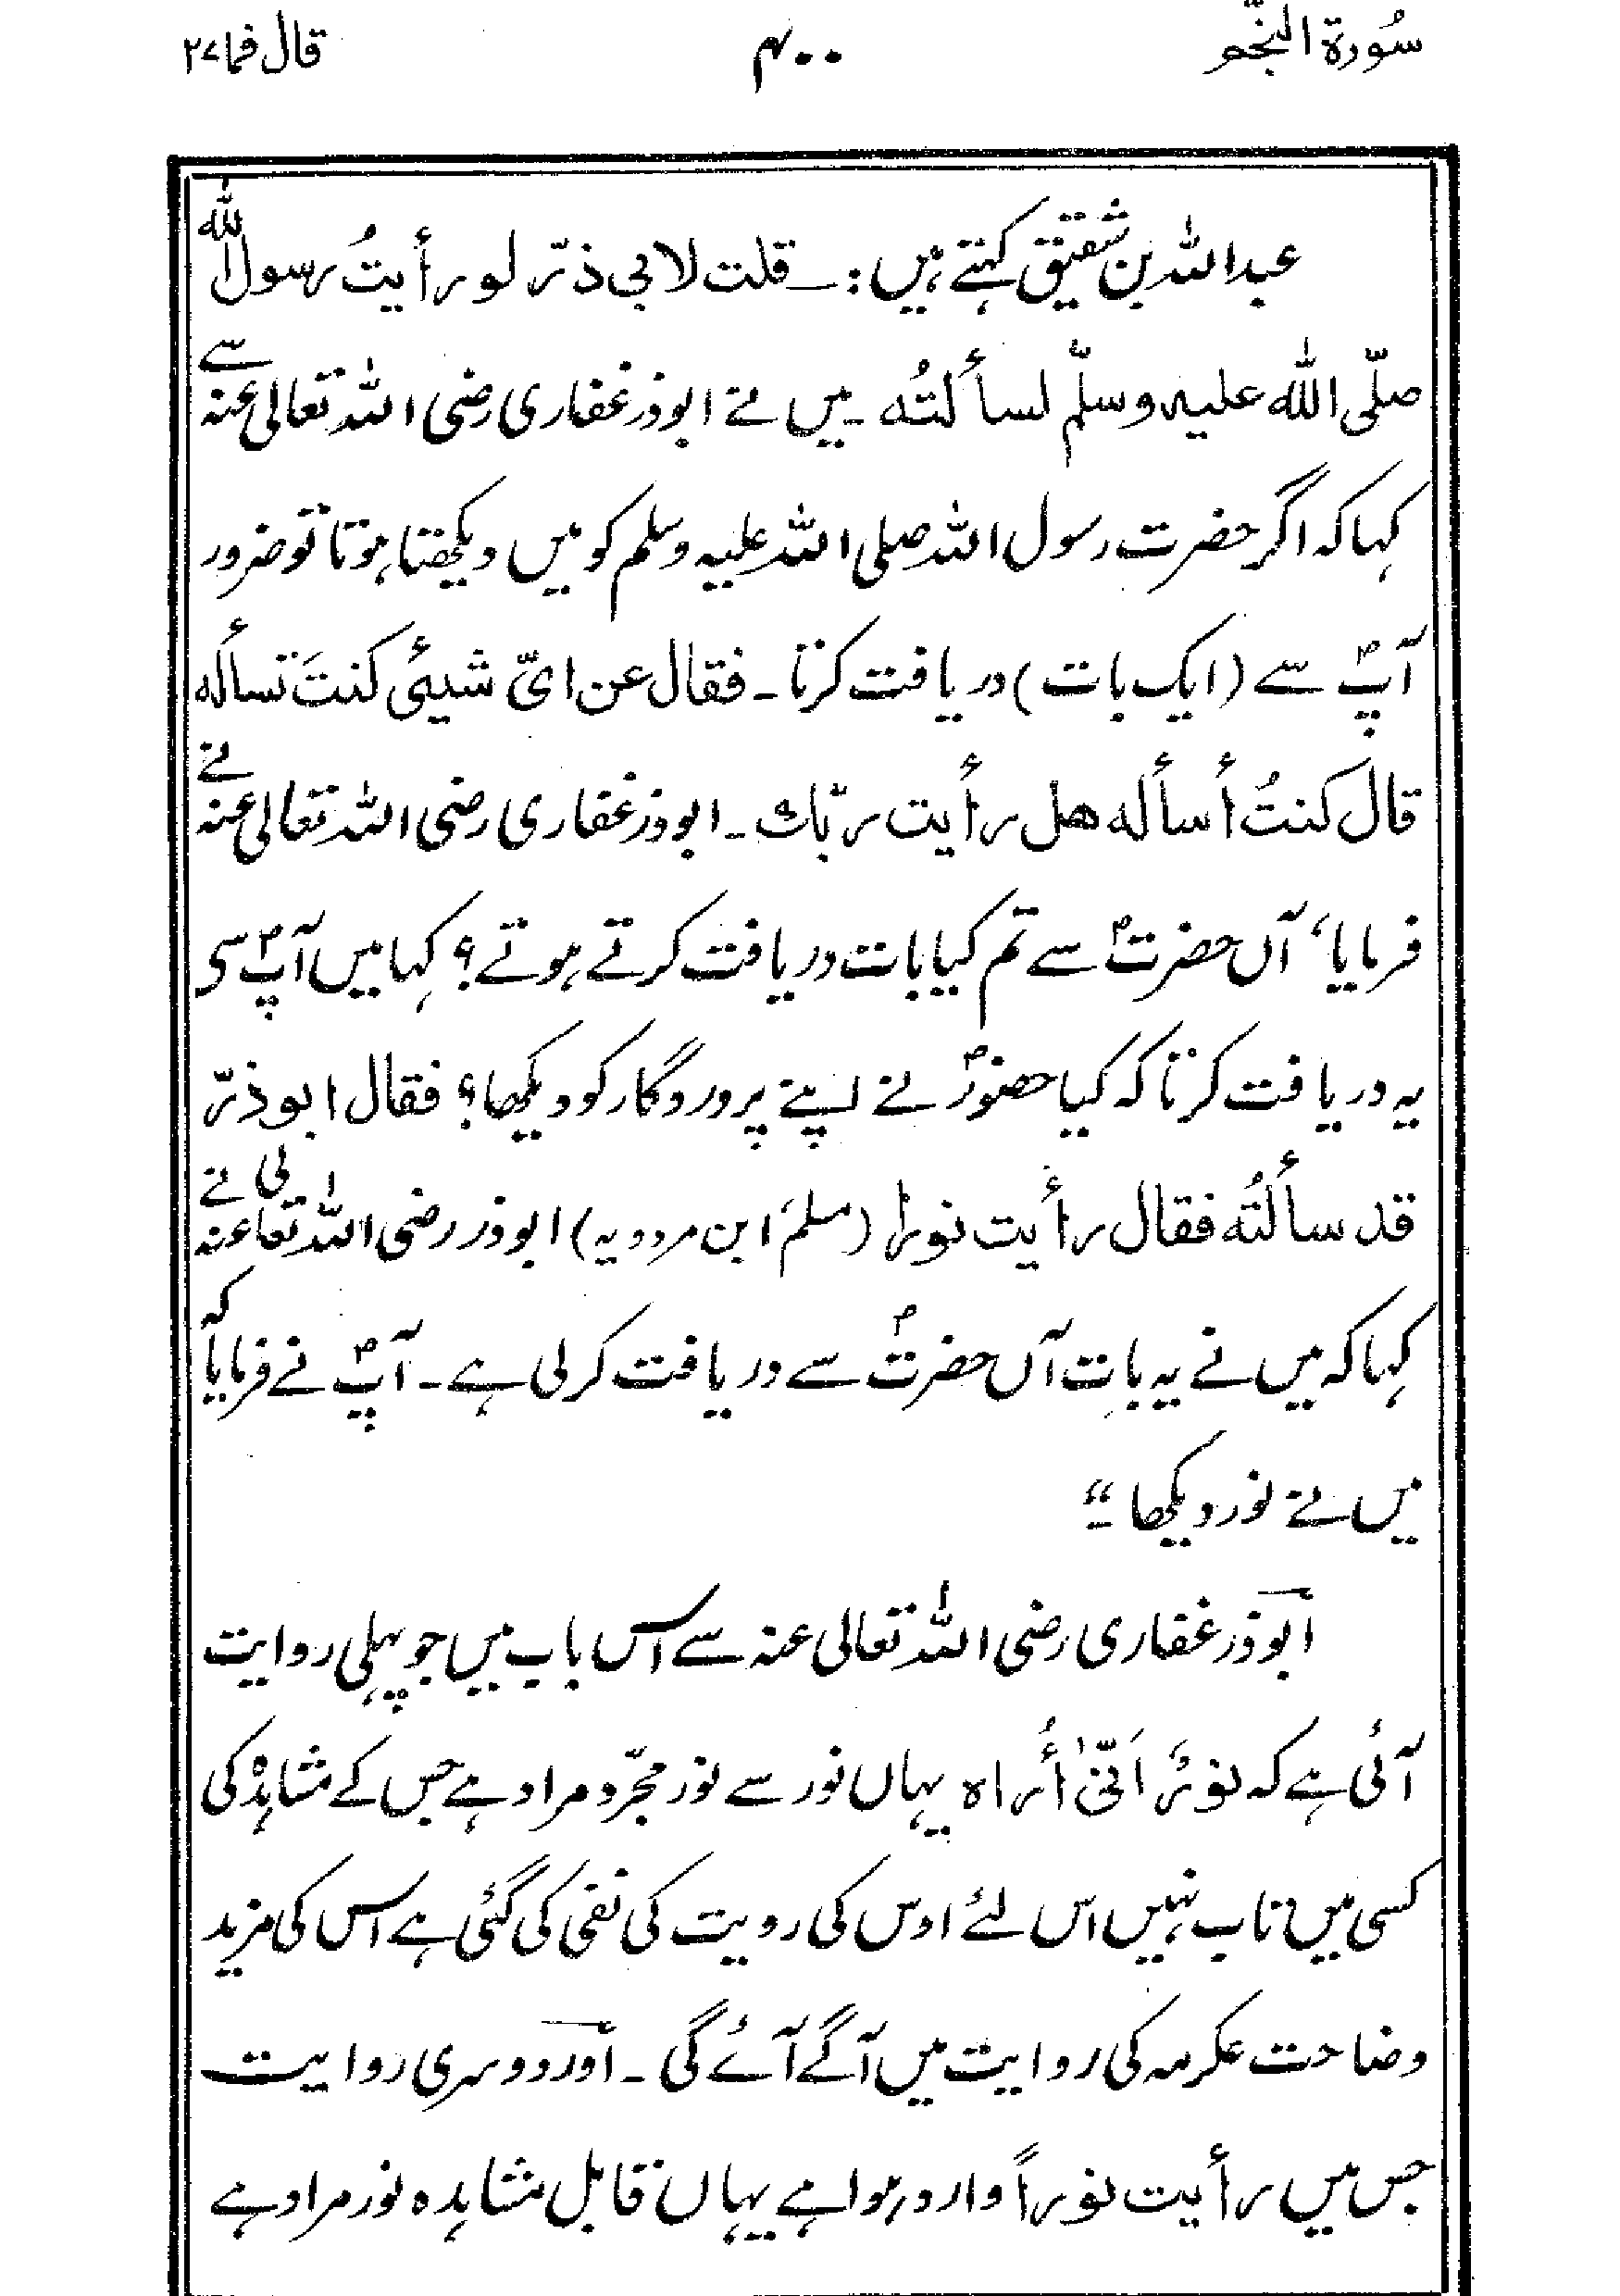 سُورة النّجم ۴۰۰ قال فما ۲۷
عبداللہ بن شقیق کہتے ہیں :۔ قلت لابی ذرّ لو رأیتُ رسول اللّٰه
صلّی اللّٰه علیه وسلّم لسألتُه ۔ میں نے ابوذر غفاری رضی اللہ تعالیٰ عنہ سے
کہا کہ اگر حضرت رسول اللہ صلی اللہ علیہ وسلم کو میں دیکھتا ہوتا تو ضرور
آپؐ سے (ایک بات) دریافت کرتا ۔ فقال عن ایّ شیئی کنتَ تسأله
قال کنتُ أسأله هل رأیت ربّك ۔ ابوذر غفاری رضی اللہ تعالیٰ عنہ نے
فرمایا، آں حضرتؐ سے تم کیا بات دریافت کرتے ہوتے؟ کہا میں آپؐ سی
یہ دریافت کرتا کہ کیا حضورؐ نے اپنے پروردگار کو دیکھا؟ فقال ابوذرّ
قد سألتُه فقال رأیت نورا (مسلم، ابن مردویہ) ابوذر رضی اللہ تعالیٰ عنہ نے
کہا کہ میں نے یہ بات آں حضرتؐ سے دریافت کرلی ہے ۔ آپؐ نے فرمایا کہ
میں نے نور دیکھا ۔“
ابوذر غفاری رضی اللہ تعالیٰ عنہ سے اس باب میں جو پہلی روایت
آئی ہے کہ نورٌ اَنّیٰ أُراہ یہاں نور سے نور مجرّد مراد ہے جس کے مشاہدہ کی
کسی میں تاب نہیں اس لئے اوس کی رویت کی نفی کی گئی ہے اس کی مزید
وضاحت عکرمہ کی روایت میں آگے آئے گی ۔ اور دوسری روایت
جس میں رأیت نوراً وارد ہوا ہے یہاں قابل مشاہدہ نور مراد ہے